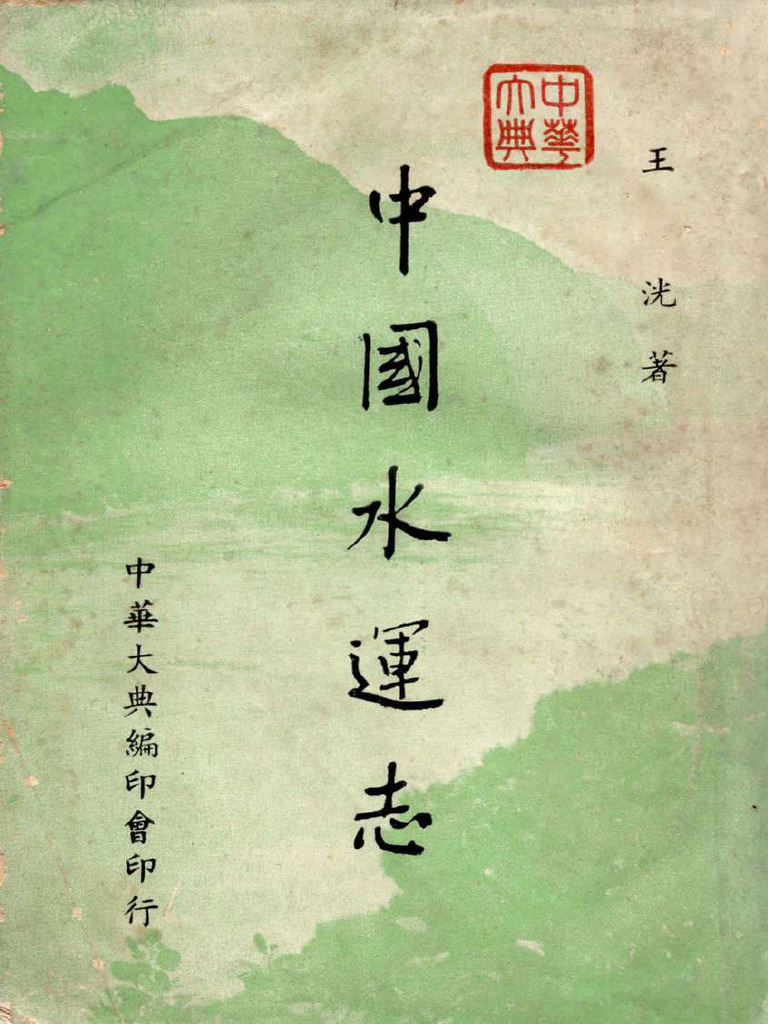 中華
大典
王洸著
中國水運志
中華大典編印會印行